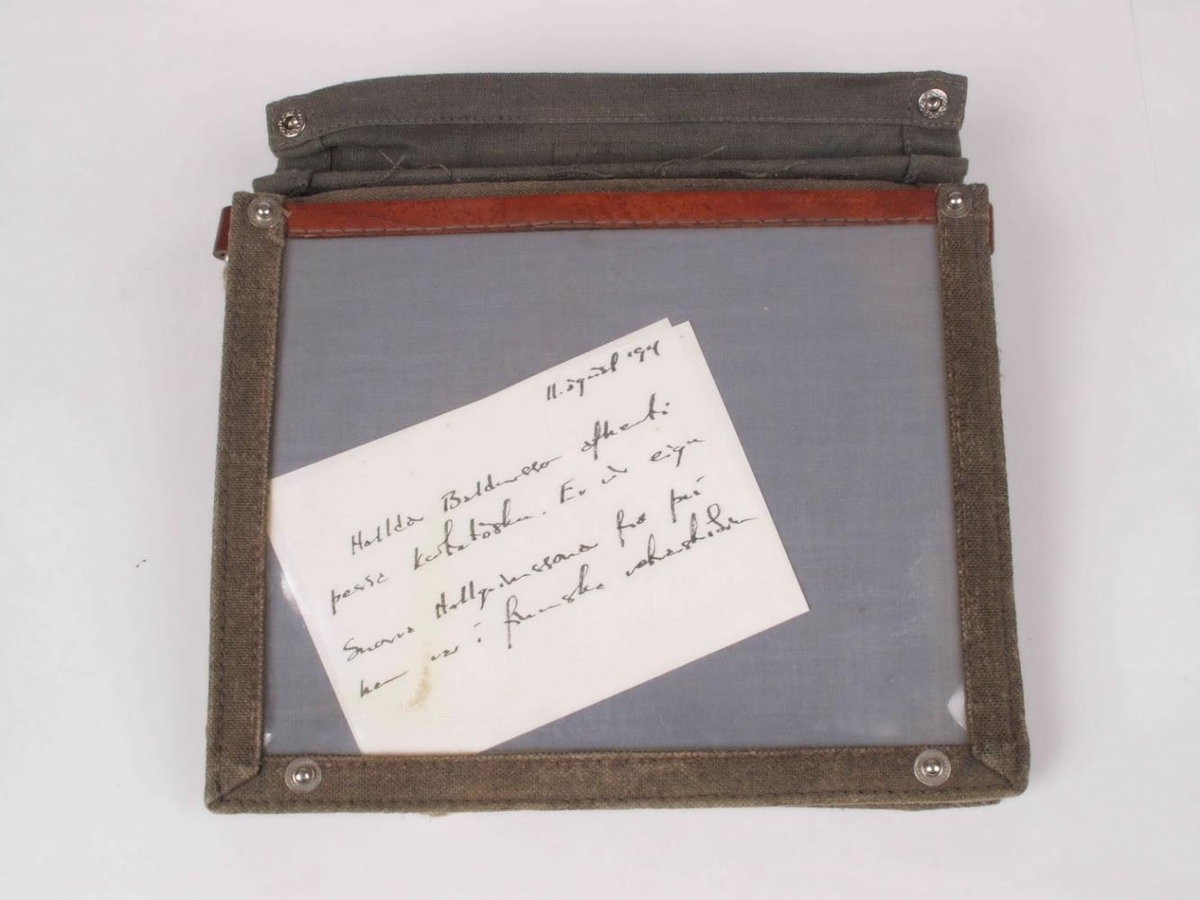 11. ágúst '94
Halldór Baldursson afhenti
þessa kortatösku. Er úr eigu
Snorra Hallgrímssonar frá því
hann var í finnska vetrarstríðinu